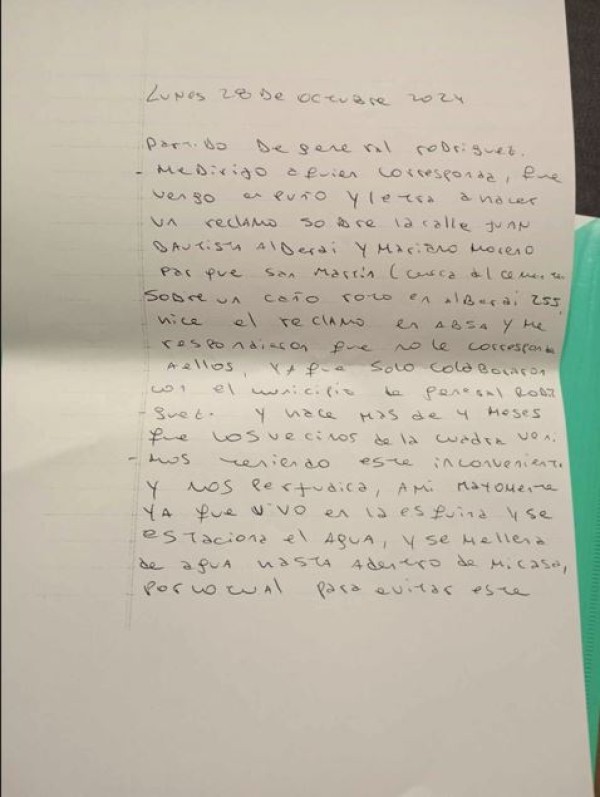 Lunes 28 De octubre 2024
Partido De general rodriguez.
- Me Dirigo a quien corresponda, que
vengo en puño y letra a hacer
un reclamo sobre la calle JUAN
BAUTISTA AlBerdi y Mariano Moreno
Par que San Martin (cerca al cemente
SOBRE un caño roto en alBerdi 255,
hice el reclamo en ABSA y me
respondieron que no le corresponde
aellos, ya que solo colaboraron
con el municipio de general RODI
guez. y hace mas de 4 meses
que los vecinos de la cuadra veni
- mos teniendo este inconveniente
y nos perjudica, AMi Mayomente
YA que vivo en la esquina y se
estaciona el Agua, y se mellena
de agua hasta adentro de Micasa,
por lo cual para evitar este